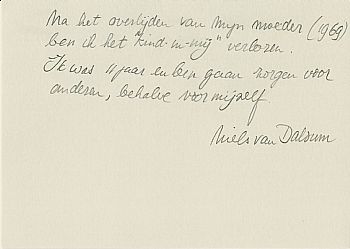 Na het overlijden van mijn moeder (1969)
ben ik het "kind-in-mij" verloren.
Ik was 11 jaar en ben gaan zorgen voor
anderen, behalve voor mijzelf.
Niels van Dalsum